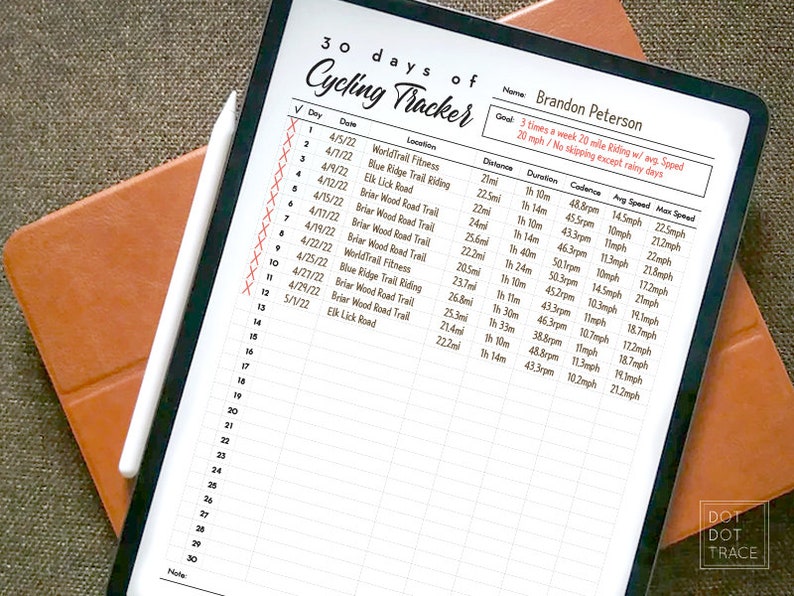 30 days of
Cycling Tracker
Name: Brandon Peterson
Goal: 3 times a week 20 mile Riding w/ avg. Spped
20 mph / No skipping except rainy days
√ Day Date Location Distance Duration Cadence Avg Speed Max Speed
1 4/5/22 WorldTrail Fitness 21mi 1h 10m 48.8rpm 14.5mph 22.5mph
2 4/7/22 Blue Ridge Trail Riding 22.5mi 1h 14m 45.5rpm 10mph 21.2mph
3 4/9/22 Elk Lick Road 22mi 1h 10m 43.3rpm 11mph 22mph
4 4/12/22 Briar Wood Road Trail 24mi 1h 14m 46.3rpm 11.3mph 21.8mph
5 4/15/22 Briar Wood Road Trail 25.6mi 1h 40m 50.1rpm 10mph 17.2mph
6 4/17/22 Briar Wood Road Trail 22.2mi 1h 24m 50.3rpm 14.5mph 21mph
7 4/19/22 Briar Wood Road Trail 20.5mi 1h 10m 45.2rpm 10.3mph 19.1mph
8 4/22/22 WorldTrail Fitness 23.7mi 1h 11m 43.3rpm 11mph 18.7mph
9 4/25/22 Blue Ridge Trail Riding 26.8mi 1h 30m 46.3rpm 10.7mph 17.2mph
10 4/27/22 Briar Wood Road Trail 25.3mi 1h 33m 38.8rpm 11mph 18.7mph
11 4/29/22 Briar Wood Road Trail 21.4mi 1h 10m 48.8rpm 11.3mph 19.1mph
12 5/1/22 Elk Lick Road 22.2mi 1h 14m 43.3rpm 10.2mph 21.2mph
13
14
15
16
17
18
19
20
21
22
23
24
25
26
27
28
29
30
Note:
DOT
DOT
TRACE